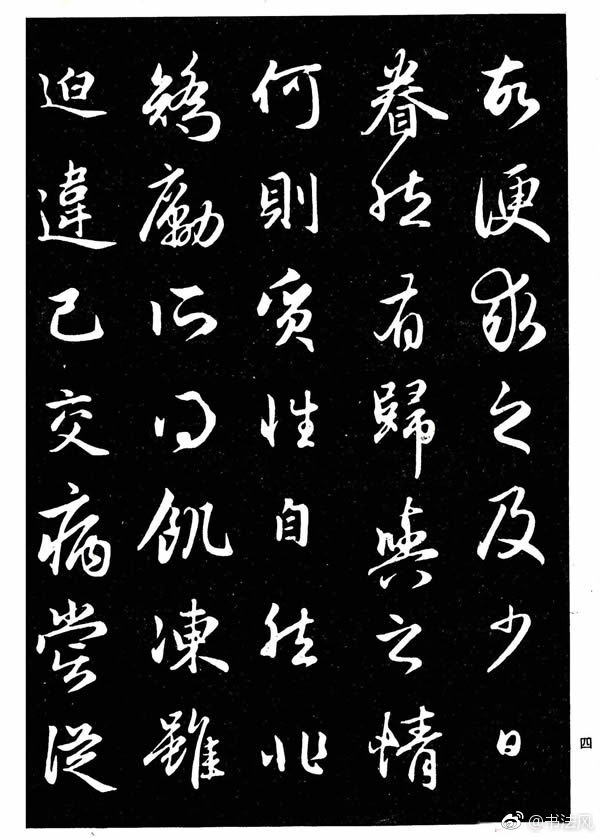 故便求之及少日
眷然有歸與之情
何則質性自然非
矯勵所得飢凍雖
迫違己交病嘗從
四
@书法风